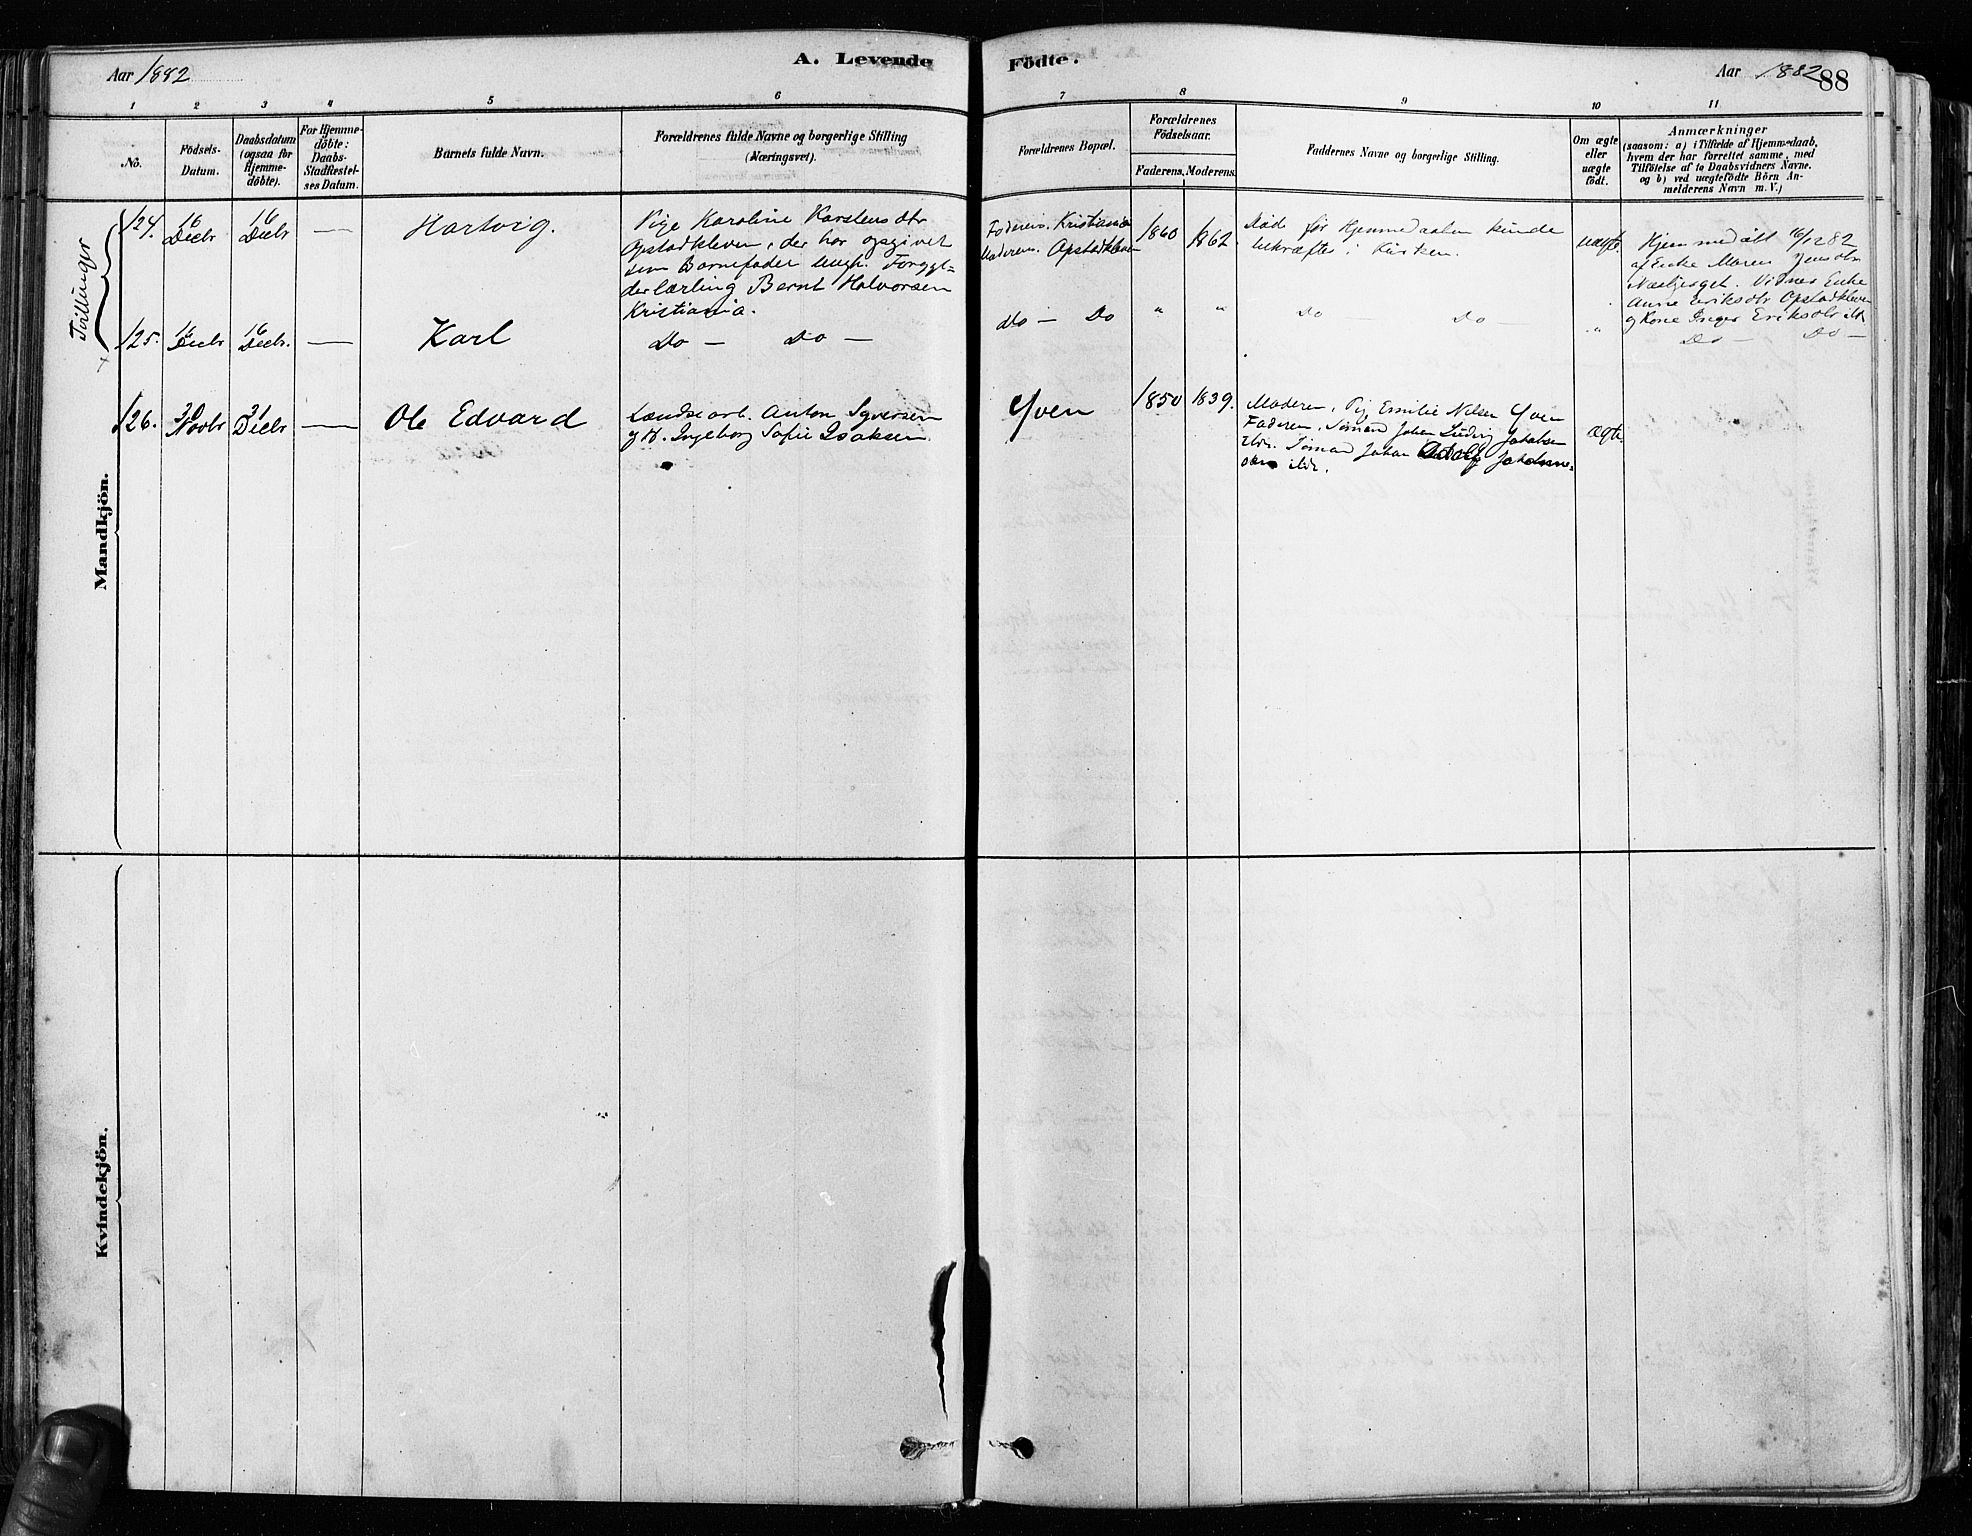 A. Levende Födte.
Aar 1882
Aar 1882
88
1 2 3 4 5 6 7 8 9 10 11
No.
Födsels-
Datum.
Daabsdatum
(ogsaa for
Hjemme-
döbte).
For Hjemme-
döbte:
Daabs-
Stadfæstel-
ses Datum.
Barnets fulde Navn.
Forældrenes fulde Navne og borgerlige Stilling
(Næringsvei).
Forældrenes Bopæl.
Forældrenes
Födselsaar.
Faderens. Moderens.
Faddernes Navne og borgerlige Stilling.
Om ægte
eller
uægte
födt.
Anmærkninger
(saasom: a) i Tilfælde af Hjemmedaab,
hvem der har forrettet samme, med
Tilföielse af to Daabsvidners Navne.
og b) ved uægtefödte Börn An-
melderens Navn m. V.)
Tvillinger
Mandkjön.
124.
16
Decbr
16
Decbr
Hartvig.
Pige Karoline Karstensdtr
Opstadkleven, der har opgivet
som Barnefader ungk. Forgyl-
derlærling Bernt Halvorsen
Kristiania.
Faderens. Kristiania
Moderens. Opstadkleven
1860
1862.
Død før Hjemmedaaben kunde
bekræftes i Kirken.
uægte.
Hjemmedøbt 16/12 82
af Enke Maren Jensdtr
Næsbjerget. Vidner Enke
Anne Eriksdtr Opstadkleven
og Kone Inger Eriksdtr ibd.
125.
16
Decbr
16
Decbr.
—
Karl
Do — Do —
Do — Do
" "
Do — Do —
"
Do — Do —
126.
30
Novbr
31
Decbr
—
Ole Edvard
Lændsearb. Anton Syversen
og H. Ingeborg Sofie Isaksen.
Yven
1850
1839.
Moderen, Pig. Emilie Nilsen Yven
Faderen, Sømand Johan Ludvig Jakobsen
ibdr. Sømand Johan Adolf Johanne-
sen ibdr.
ægte
Kvindekjön.